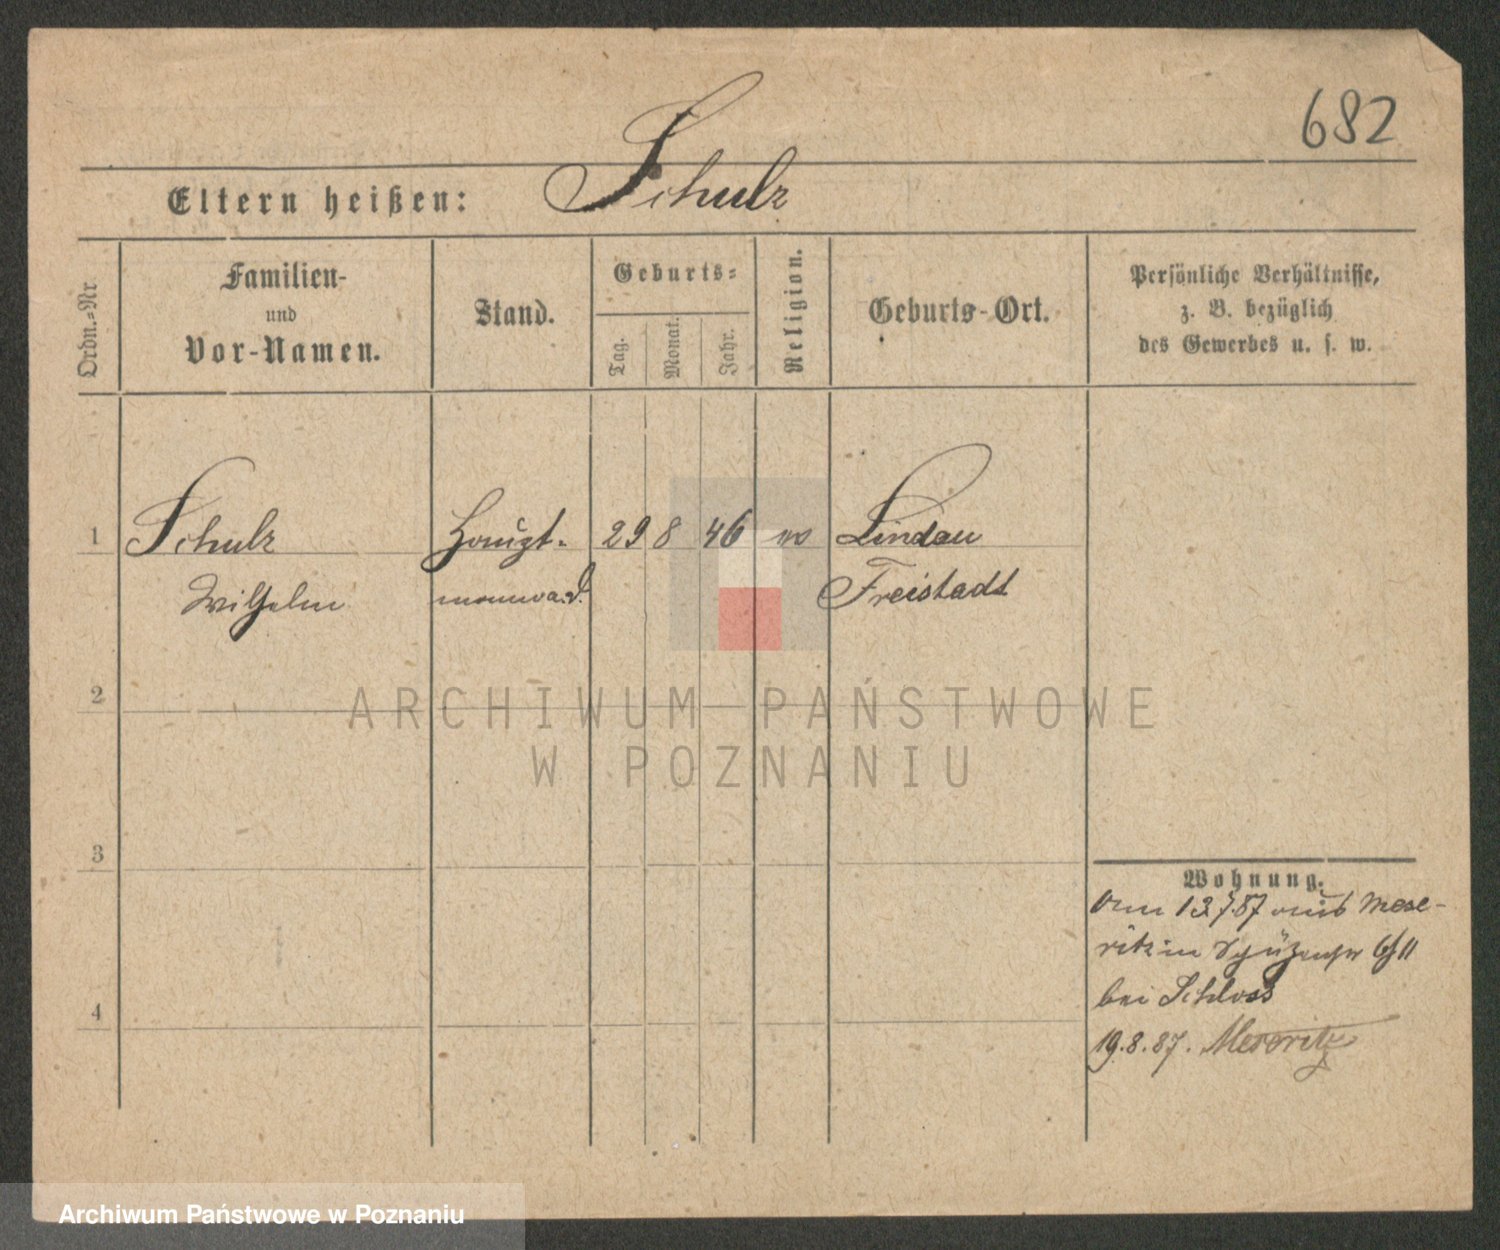 682
Eltern heißen: Schulz
Ordn.=Nr
Familien-
und
Vor-Namen.
Stand.
Geburts=
Tag.
Monat.
Jahr.
Religion.
Geburts-Ort.
Persönliche Verhältnisse,
z. B. bezüglich
des Gewerbes u. s. w.
1 Schulz Haupt- 29 8 46 Lindau
Wilhelm mann a. d. Freistadt
2
ARCHIWUM PAŃSTWOWE
W POZNANIU
3
Wohnung.
am 13/7 87 aus Mese-
ritz in 6/11
bei Schloss
4
19.8.87. Meseritz
Archiwum Państwowe w Poznaniu